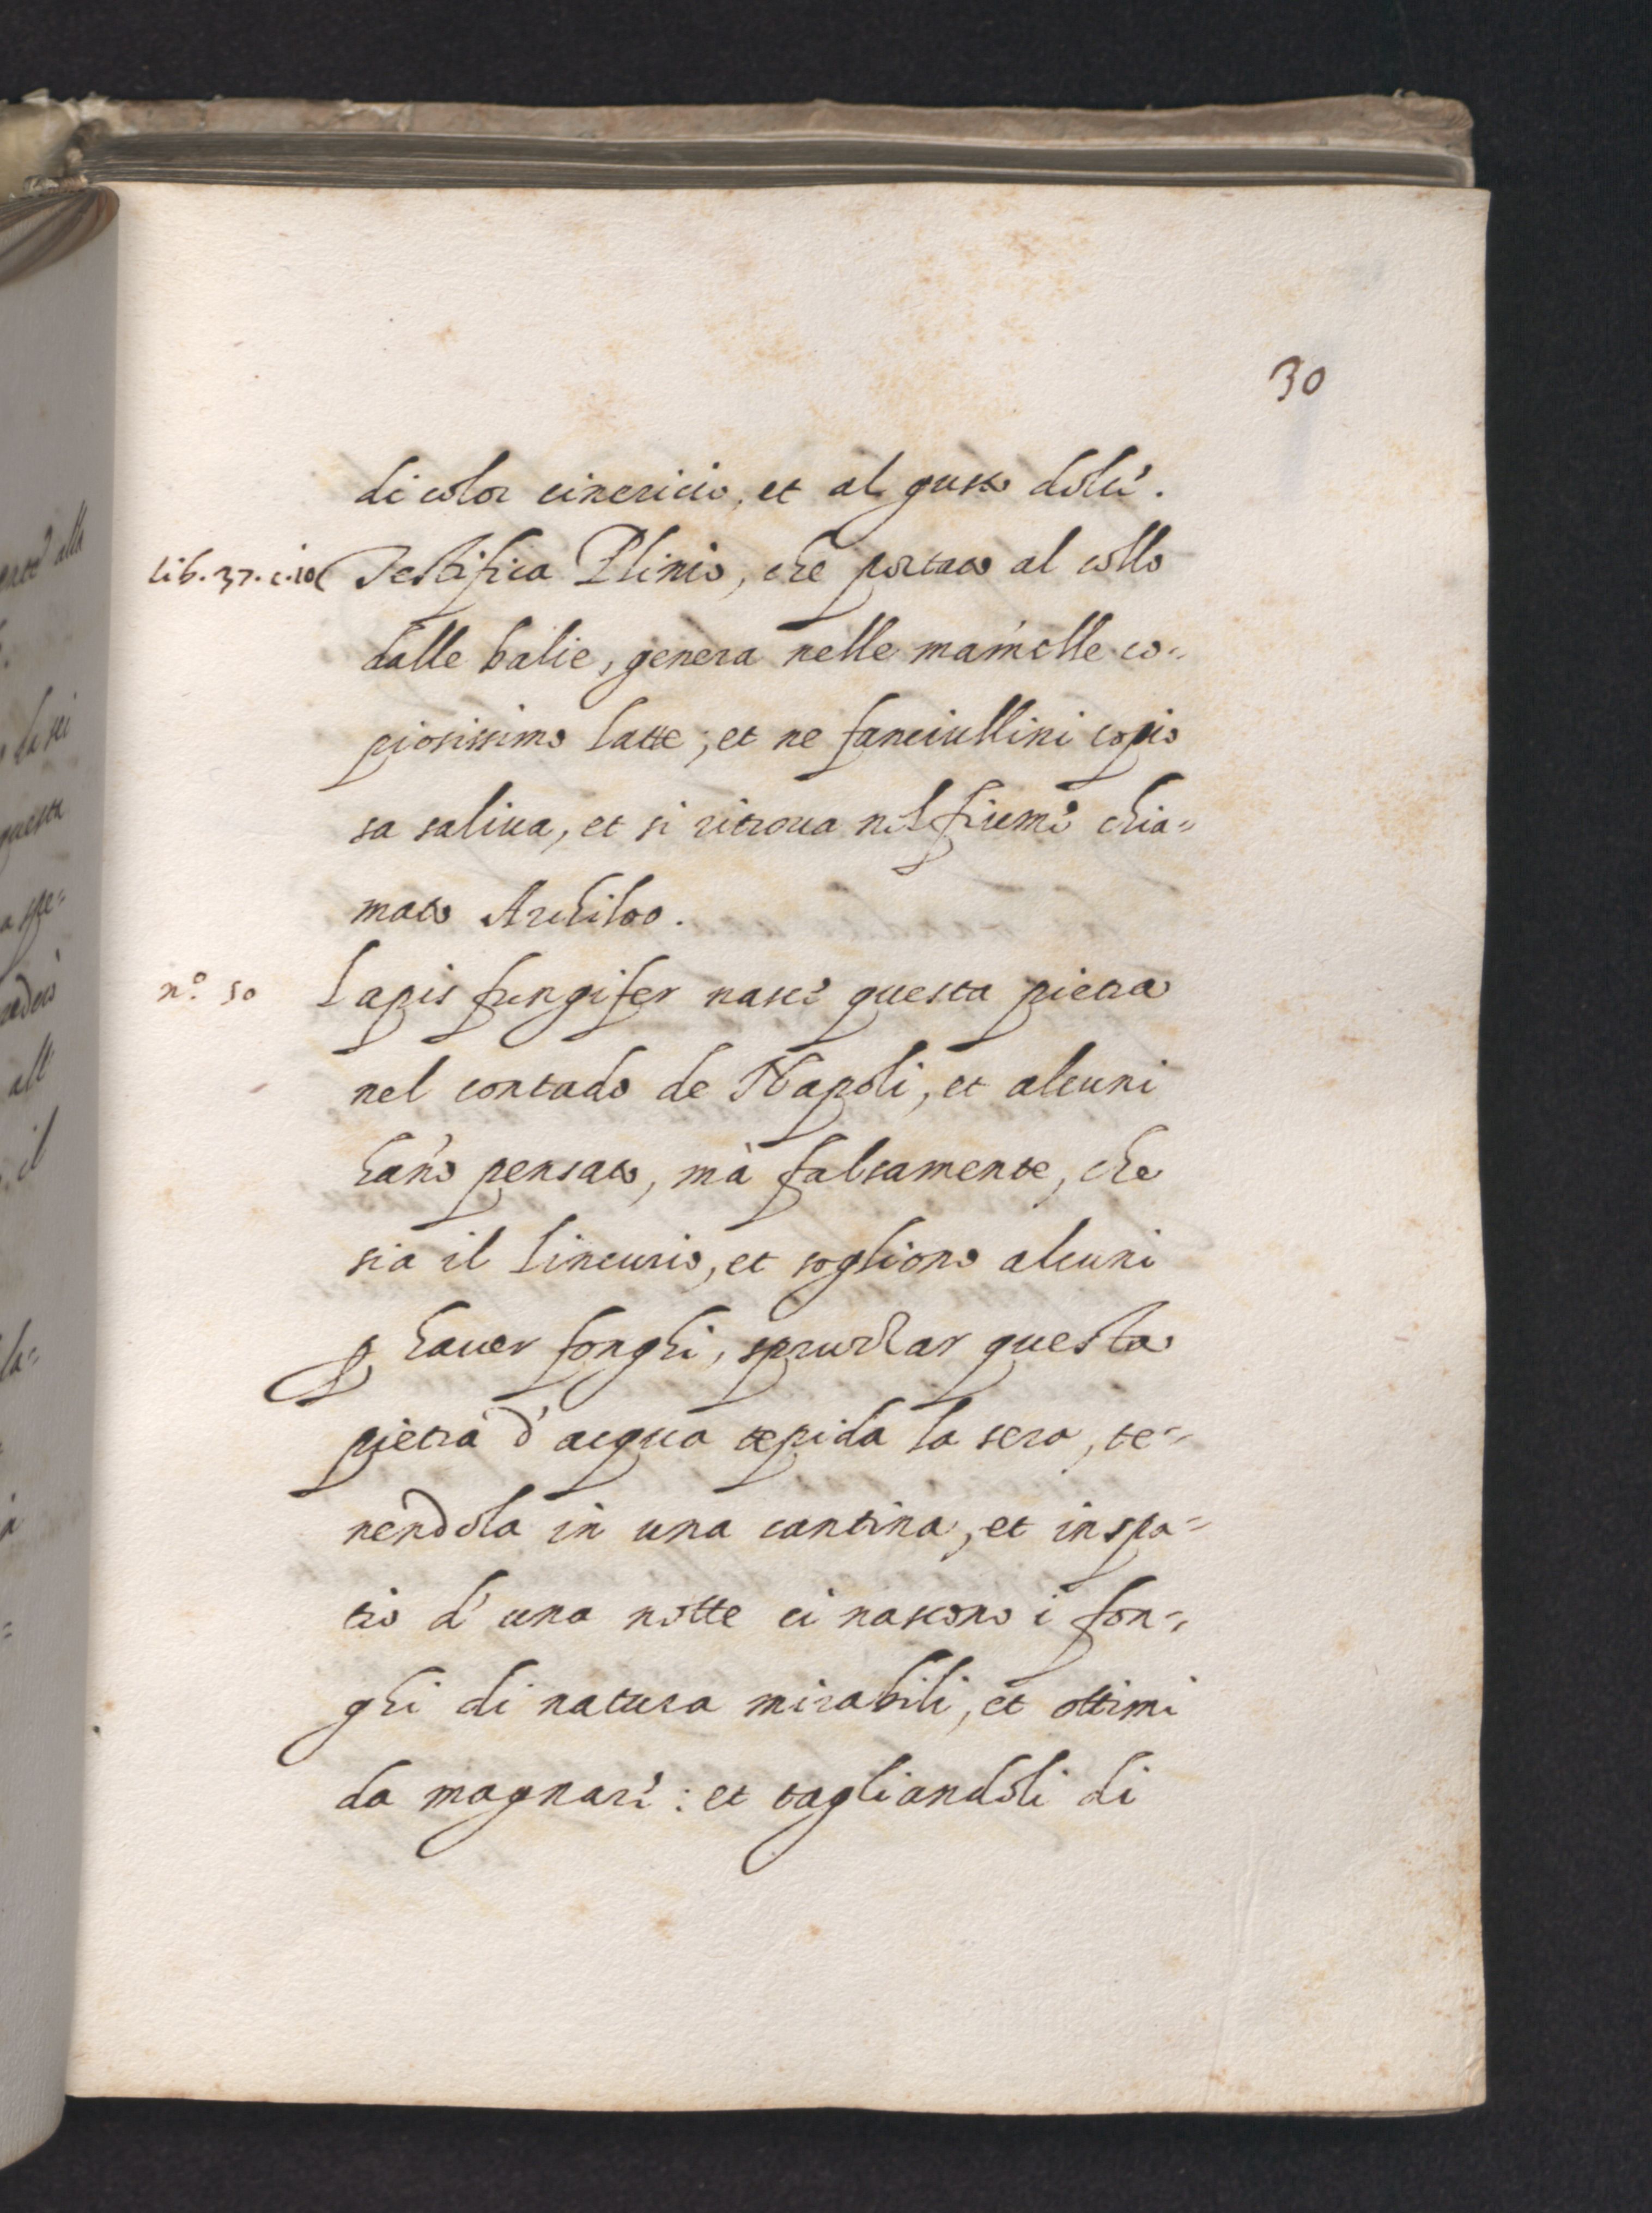 30
di color cinericio, et al gusto dolce.
lib. 37. c. 10 Testifica Plinio, che portato al collo
dalle balie, genera nelle mam̃elle co=
piosissimo latte; et ne fanciullini copio
sa saliua, et si ritroua nel fiume chia=
mato Archiloo.
n.o 50 Lapis fungifer nasce questa pietra
nel contado de Napoli, et alcuni
hañо pensato, mà falsamente, che
sia il Lincurio, et sogliono alcuni
ꝑ hauer fonghi, spruzzar questa
pietra d'acqua tepida la sera, te=
nendola in una cantina, et in spa=
tio d'una notte ci nascono i fon=
ghi di natura mirabili, et ottimi
da magnare: et tagliandoli di